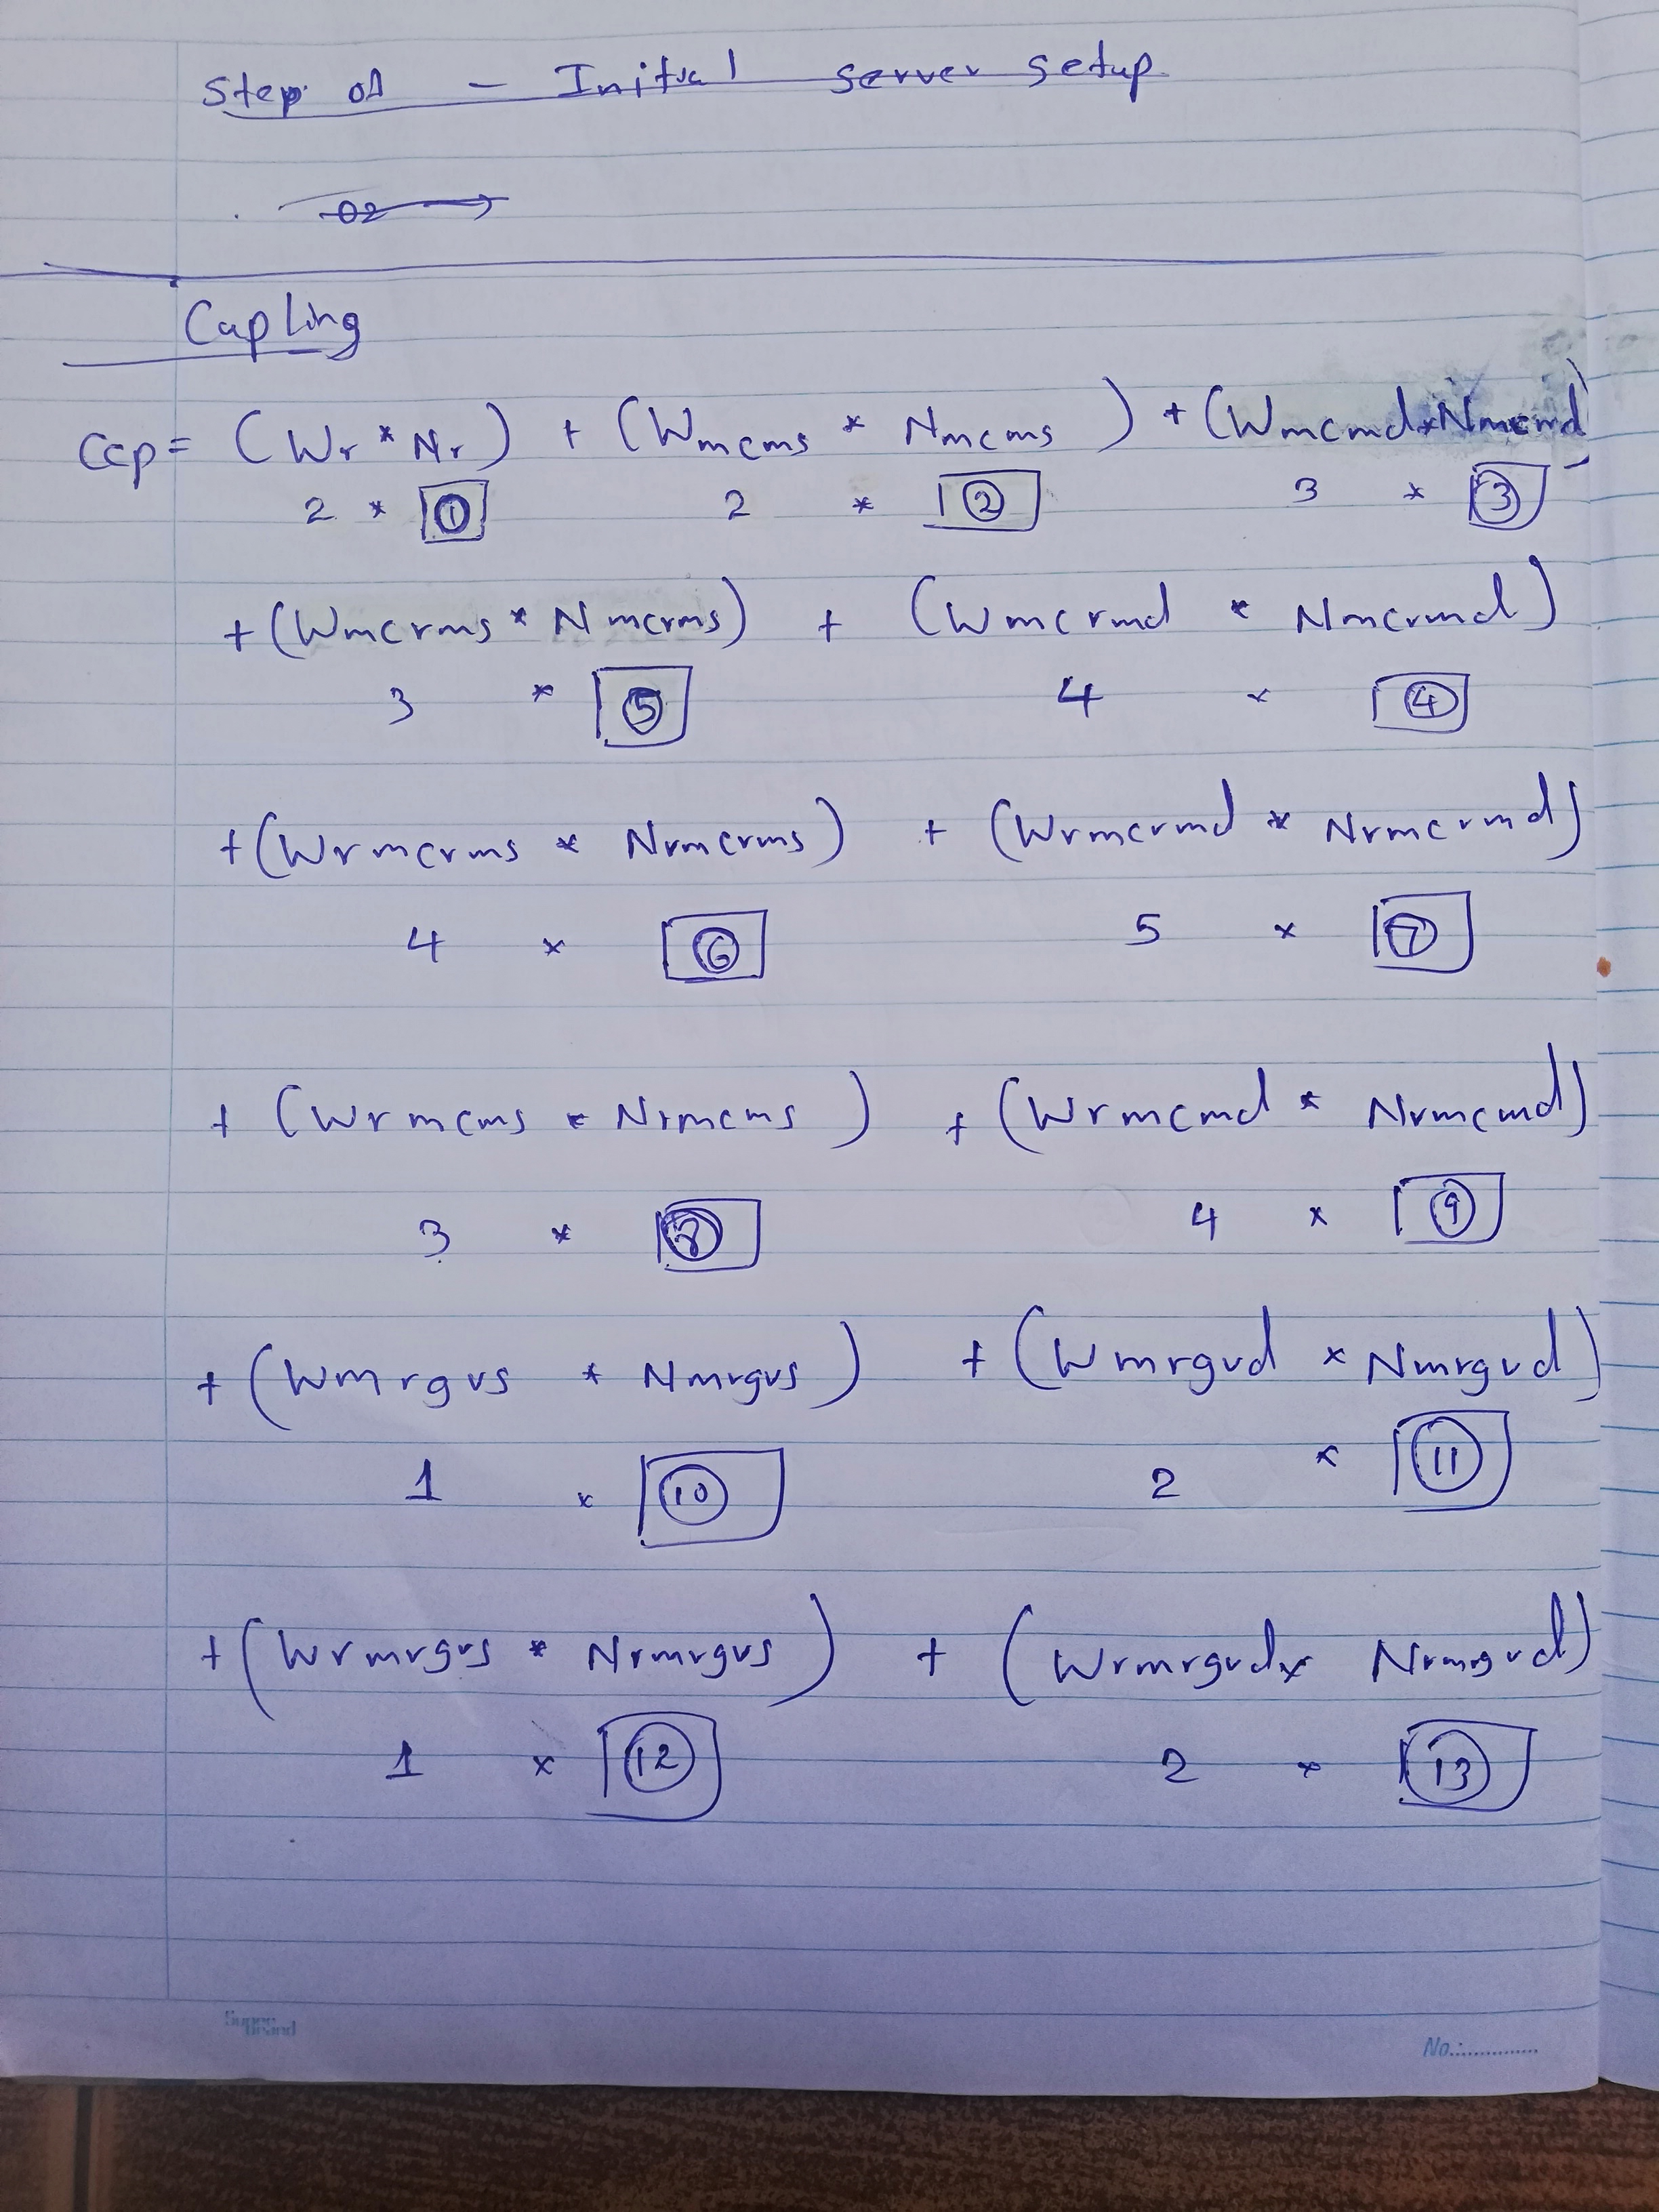 Step 01 - Initial server setup
02 →
Capling
Ccp = (Wr * Nr) + (Wmcms * Nmcms) + (Wmcmd * Nmcmd)
2 * ① 2 * ② 3 * ③
+ (Wmcrms * Nmcrms) + (Wmcrmd * Nmcrmd)
3 * ⑤ 4 * ④
+ (Wrmcrms * Nrmcrms) + (Wrmcrmd * Nrmcrmd)
4 * ⑥ 5 * ⑦
+ (Wrmcms * Nrmcms) + (Wrmcmd * Nrmcmd)
3 * ⑧ 4 * ⑨
+ (Wmrgvs * Nmrgvs) + (Wmrgvd * Nmrgvd)
1 * ⑩ 2 * ⑪
+ (Wrmrgvs * Nrmrgvs) + (Wrmrgvd * Nrmrgvd)
1 * ⑫ 2 * ⑬
No.:..............